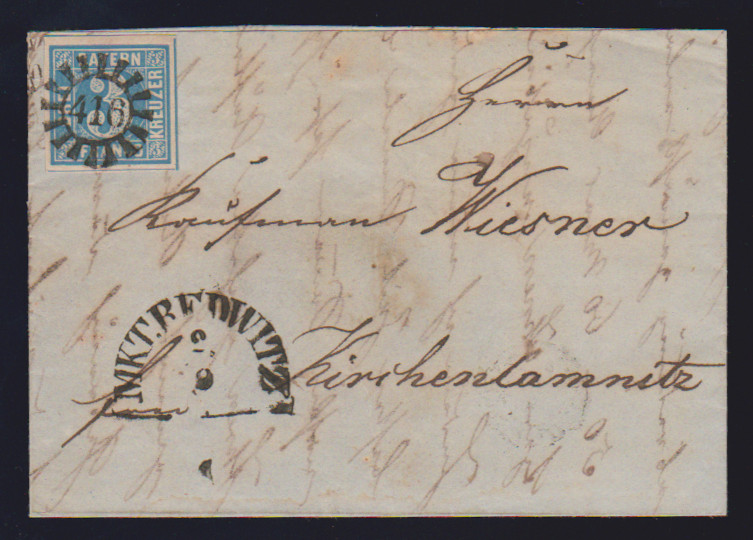 BAYERN
3
KREUZER
FRANCO
416
Herrn
Kaufman Wiesner
MKT.REDWITZ
Kirchenlamnitz